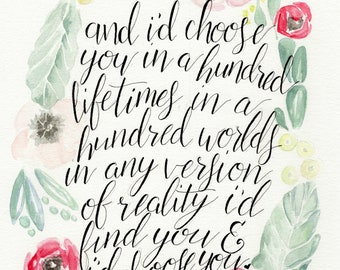 and i'd choose
you in a hundred
lifetimes in a
hundred worlds
in any version
of reality i'd
find you &
i'd choose you.